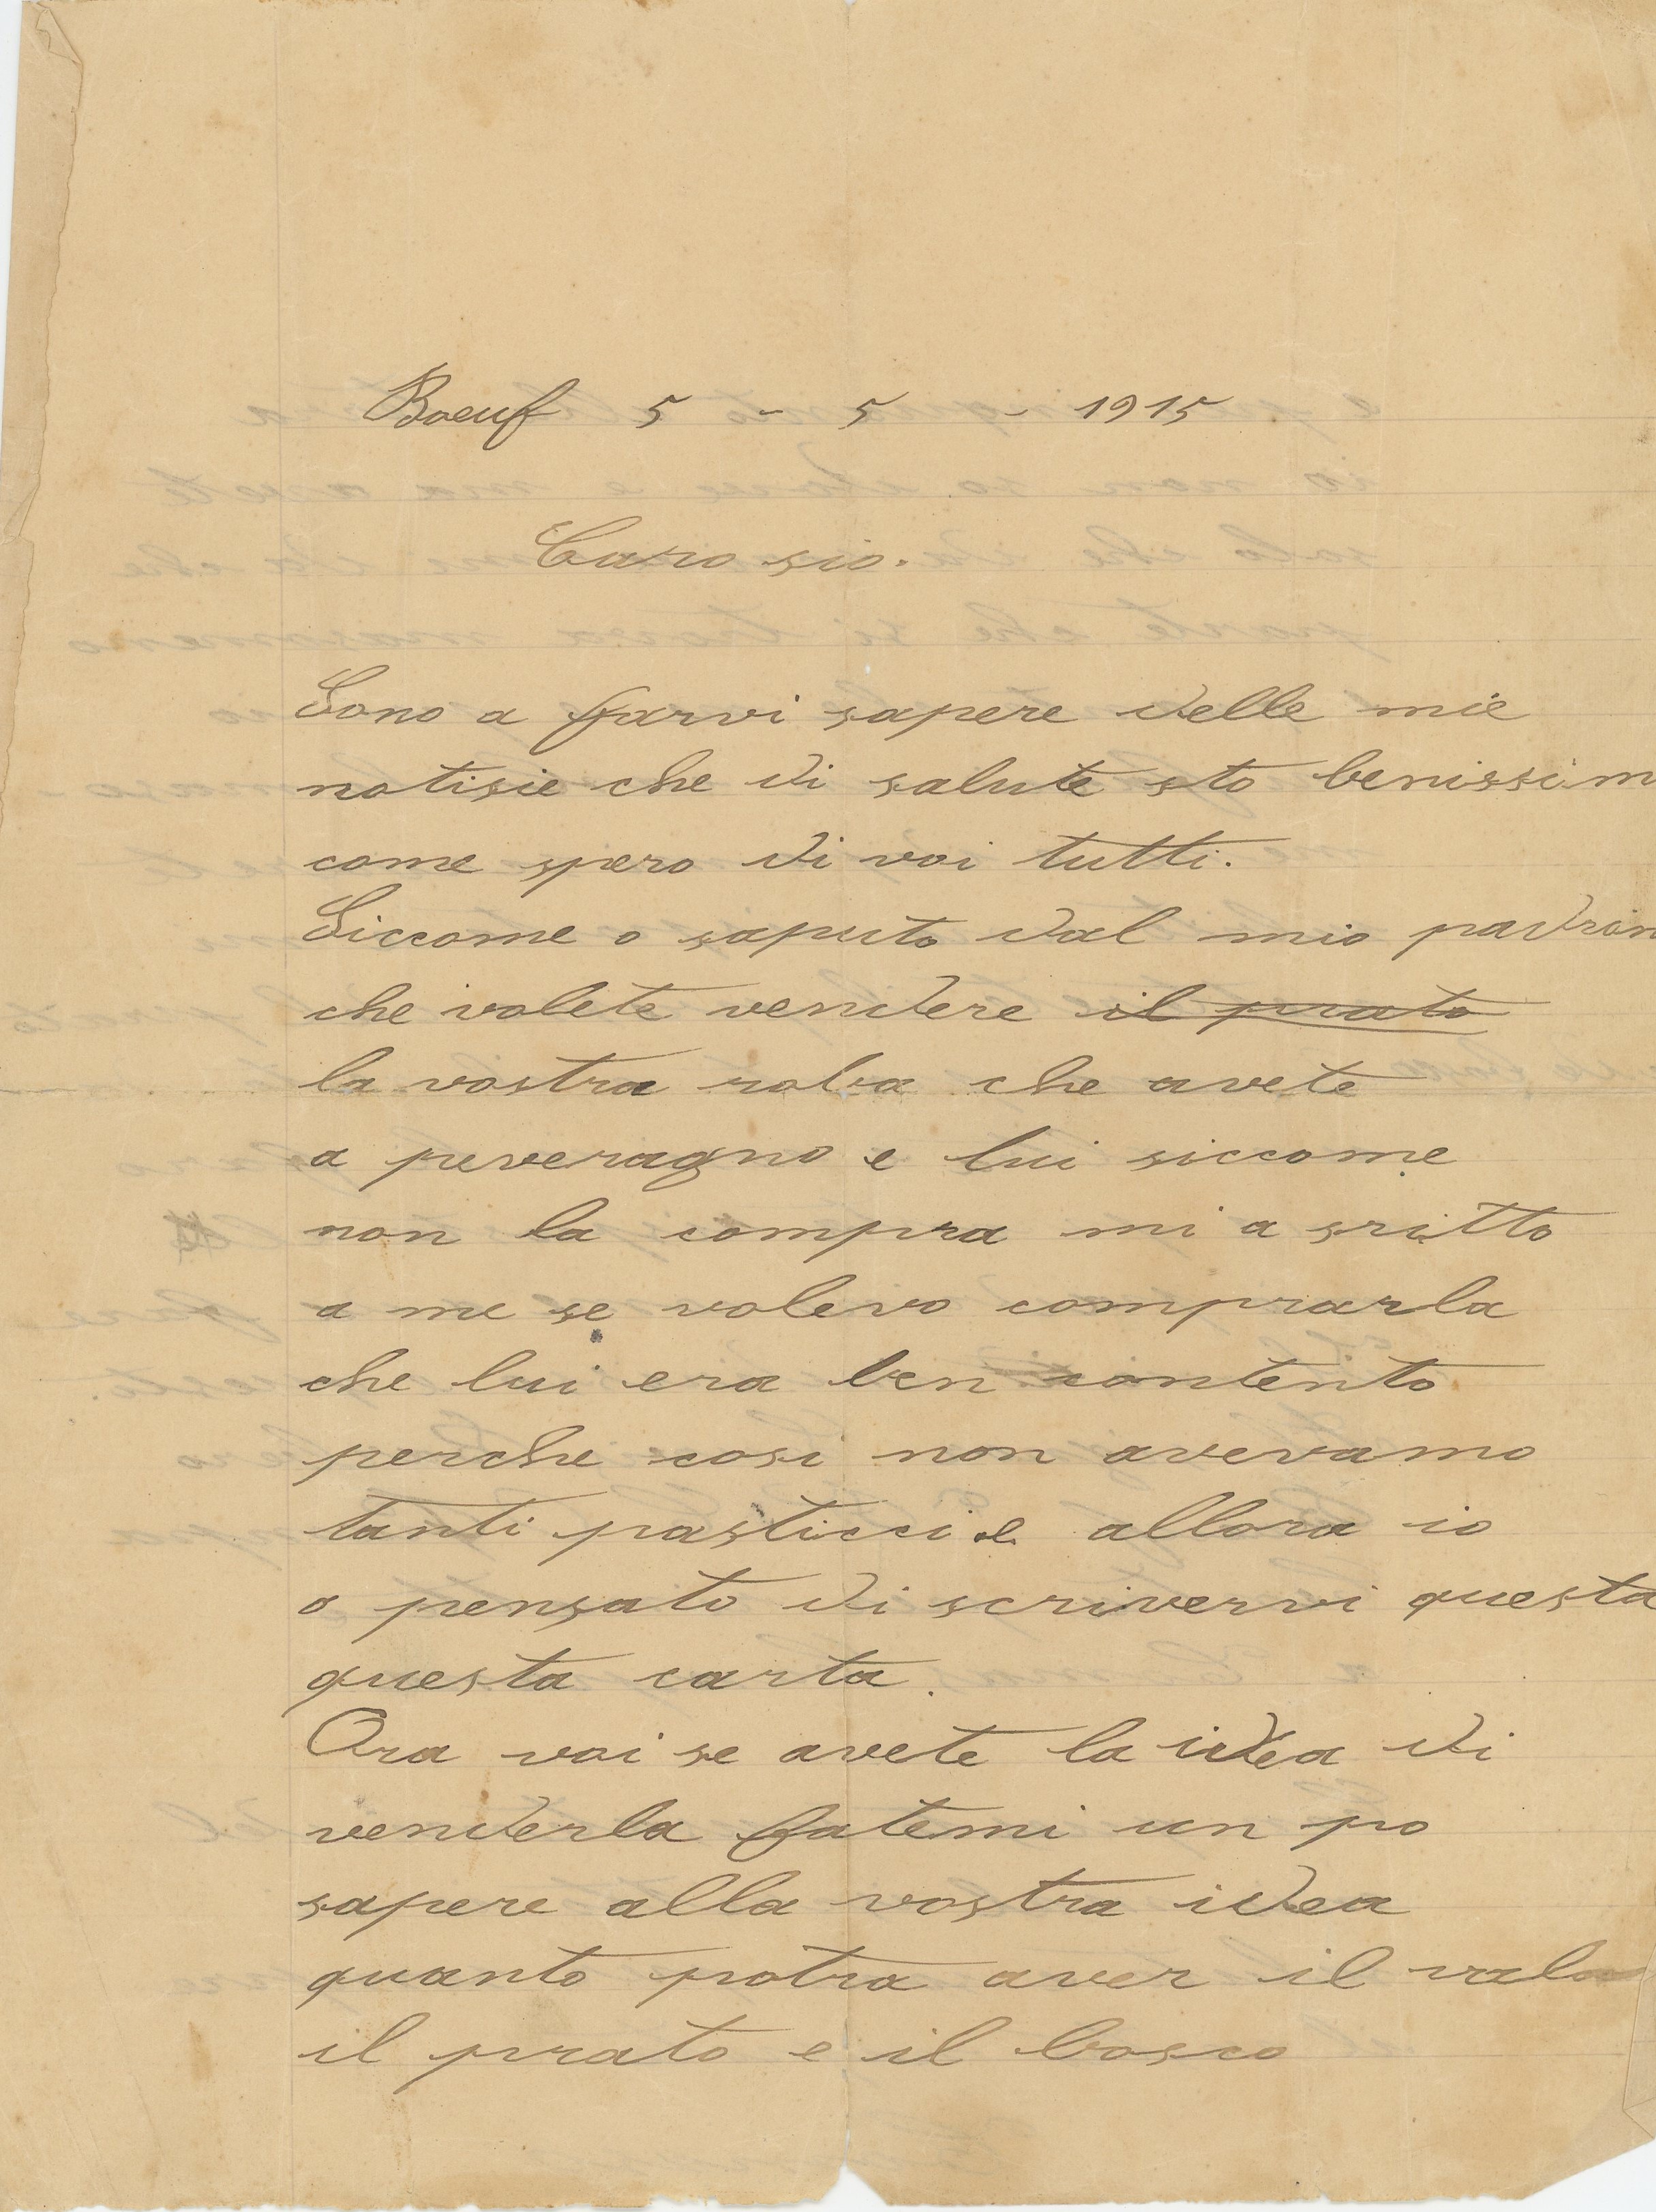 Boeuf 5 - 5 - 1915
Caro sio.
Sono a farvi sapere delle mie
notisie che di salute sto benissim
come spero di voi tutti.
Siccome o saputo dal mio padrin
che volete vendere il prato
la vostra roba che avete
a peveragno e lui siccome
non la compra mi a sritto
a me se volevo comprarla
che lui era ben contento
perche cosi non avevamo
tanti pasticci e allora io
o pensato di scrivervi questa
questa carta.
Ora voi se avete la idea di
venderla fatemi un po
sapere alla vostra idea
quanto potra aver il valo
il prato e il bosco